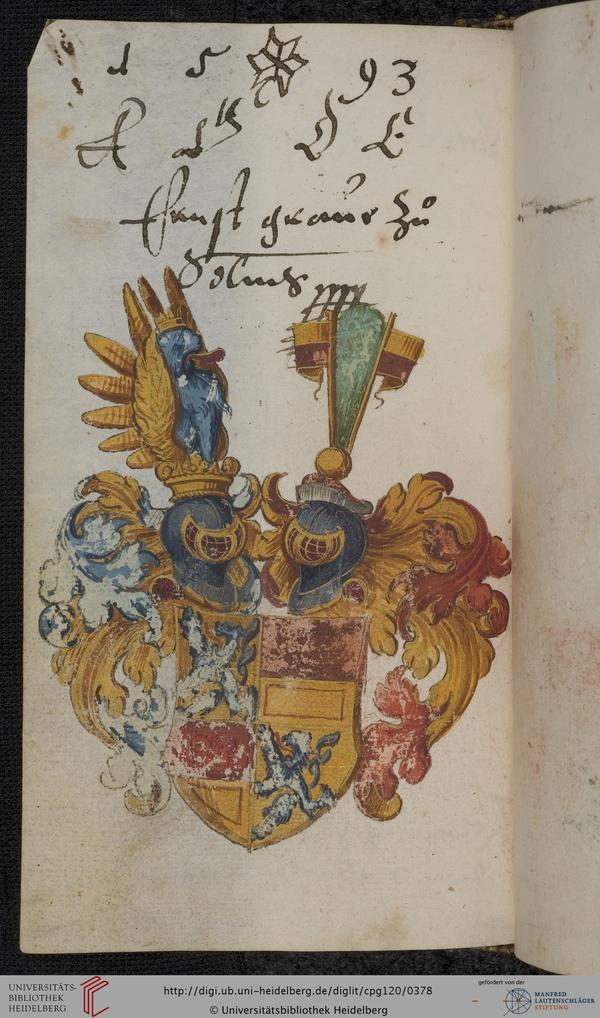 1 5 93
Ernst graue zu
Solms
UNIVERSITÄTS-
BIBLIOTHEK
HEIDELBERG
http://digi.ub.uni-heidelberg.de/diglit/cpg120/0378
© Universitätsbibliothek Heidelberg
gefördert von der
MANFRED
LAUTENSCHLÄGER
STIFTUNG